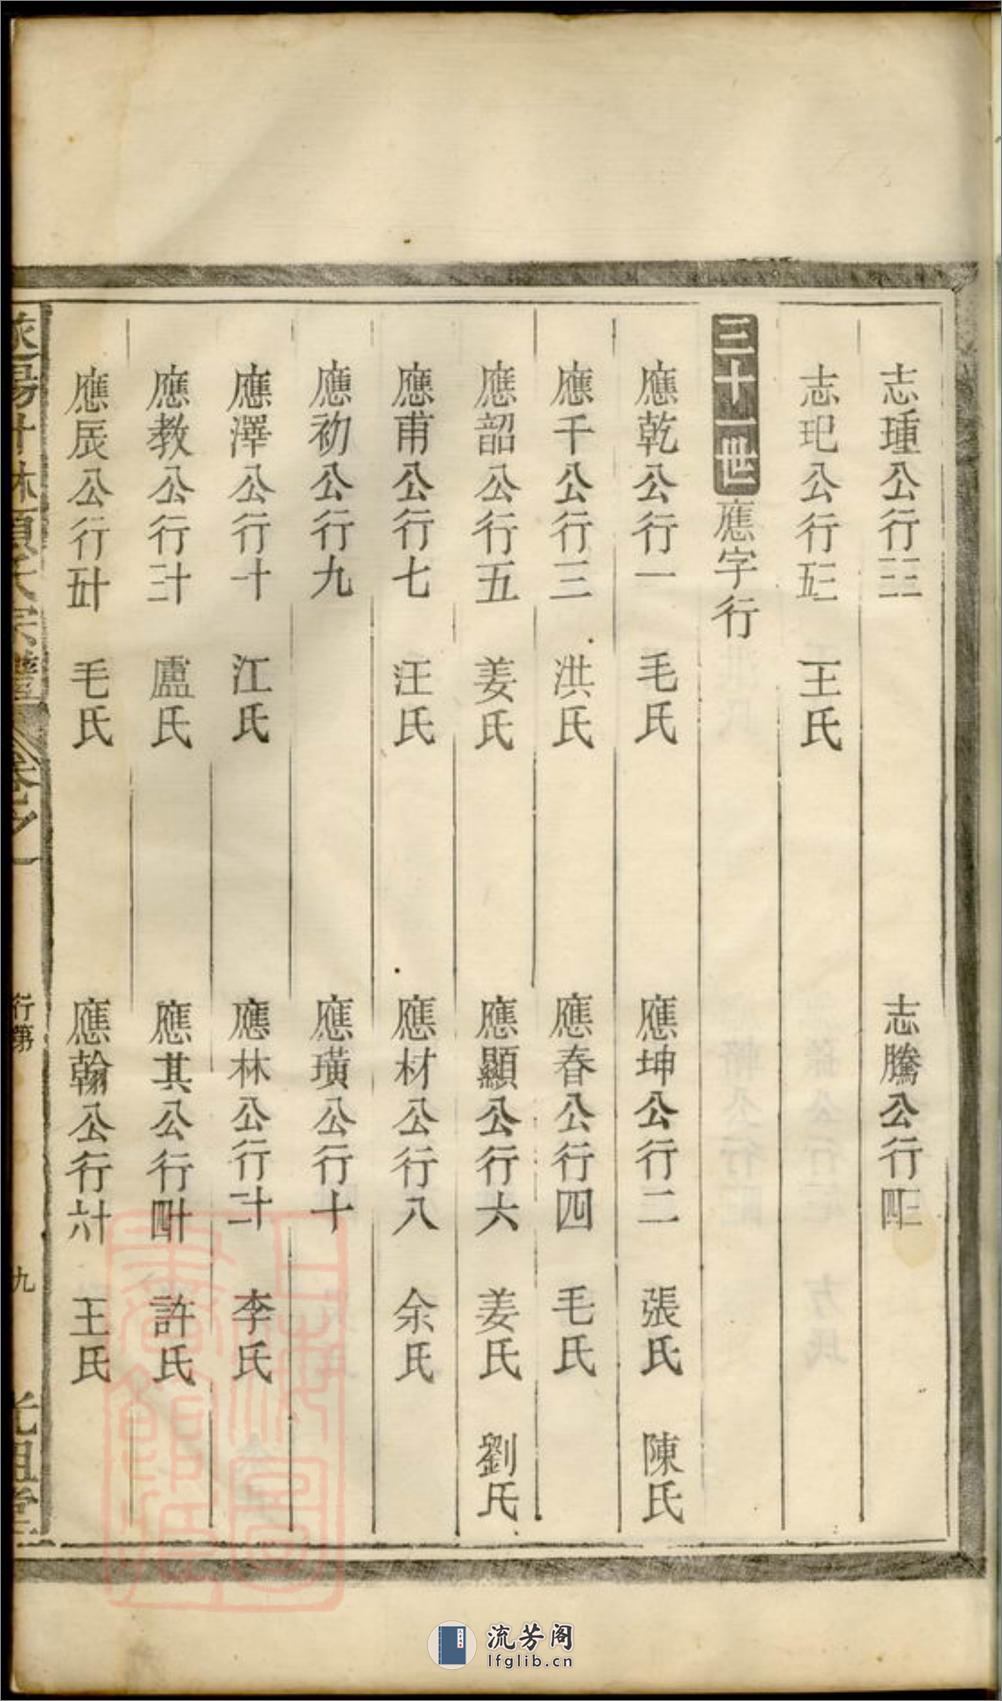 志瑾公行三三 志騰公行四三
志玘公行五三 王氏
三十一世 應字行
應乾公行一 毛氏 應坤公行二 張氏 陳氏
應千公行三 洪氏 應春公行四 毛氏
應韶公行五 姜氏 應顯公行六 姜氏 劉氏
應甫公行七 汪氏 應材公行八 余氏
應初公行九 應璜公行十
應澤公行十一 江氏 應林公行十二 李氏
應教公行十三 盧氏 應其公行十四 許氏
應辰公行十五 毛氏 應翰公行十六 王氏
宗譜 卷之一 行第 九 光祖堂
上海圖書館藏
流芳阁
lfglib.cn